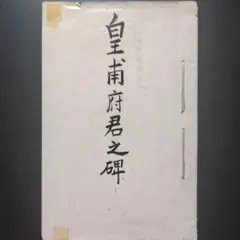 皇甫府君之碑